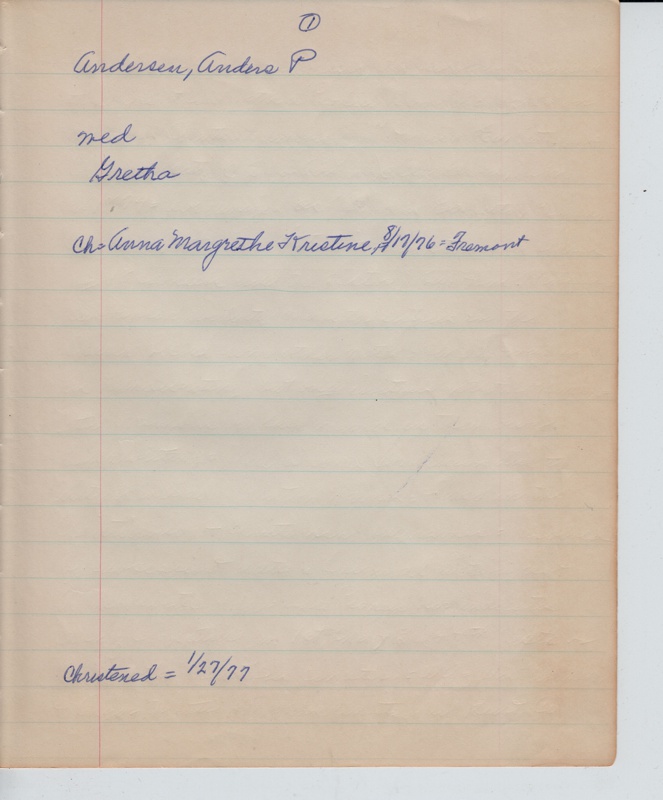 ①
Andersen, Anders P
med
Gretha
Ch= Anna Margrethe Kristine, 8/17/76= Fremont
Christened = 1/27/77